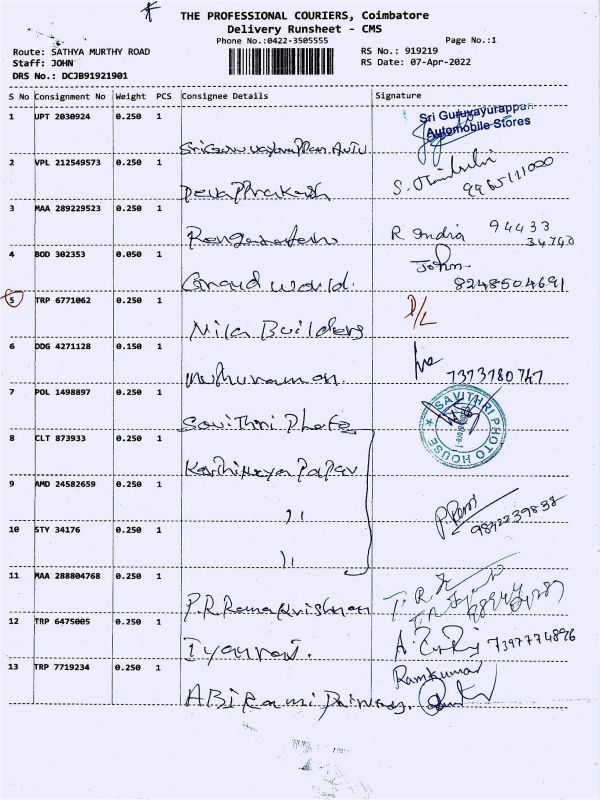 THE PROFESSIONAL COURIERS, Coimbatore
Delivery Runsheet - CMS
Phone No.:0422-3505555
Page No.:1
Route: SATHYA MURTHY ROAD
RS No.: 919219
Staff: JOHN
RS Date: 07-Apr-2022
DRS No.: DCJB91921901
S No Consignment No Weight PCS Consignee Details Signature
1 UPT 2030924 0.250 1
Sri Guruvayurappan
Automobile Stores
2 VPL 212549573 0.250 1
Deva Prakash
3 MAA 289229523 0.250 1
R. India 94433
34740
4 BOD 302353 0.050 1 John
Grand World. 8248504691
5 TRP 6771062 0.250 1 D/L
Nila Builders
6 DDG 4271128 0.150 1
Muthuraman. 7373780747
7 POL 1498897 0.250 1
Savithri Photo
SAVITHRI PHOTO HOUSE
8 CLT 873933 0.250 1
Karthikeya Papar
9 AMD 24582659 0.250 1
11
9842239838
10 STY 34176 0.250 1
11
11 MAA 288804768 0.250 1
P.R. Ramakrishnan
12 TRP 6475005 0.250 1
7397774896
13 TRP 7719234 0.250 1 Ramkumar